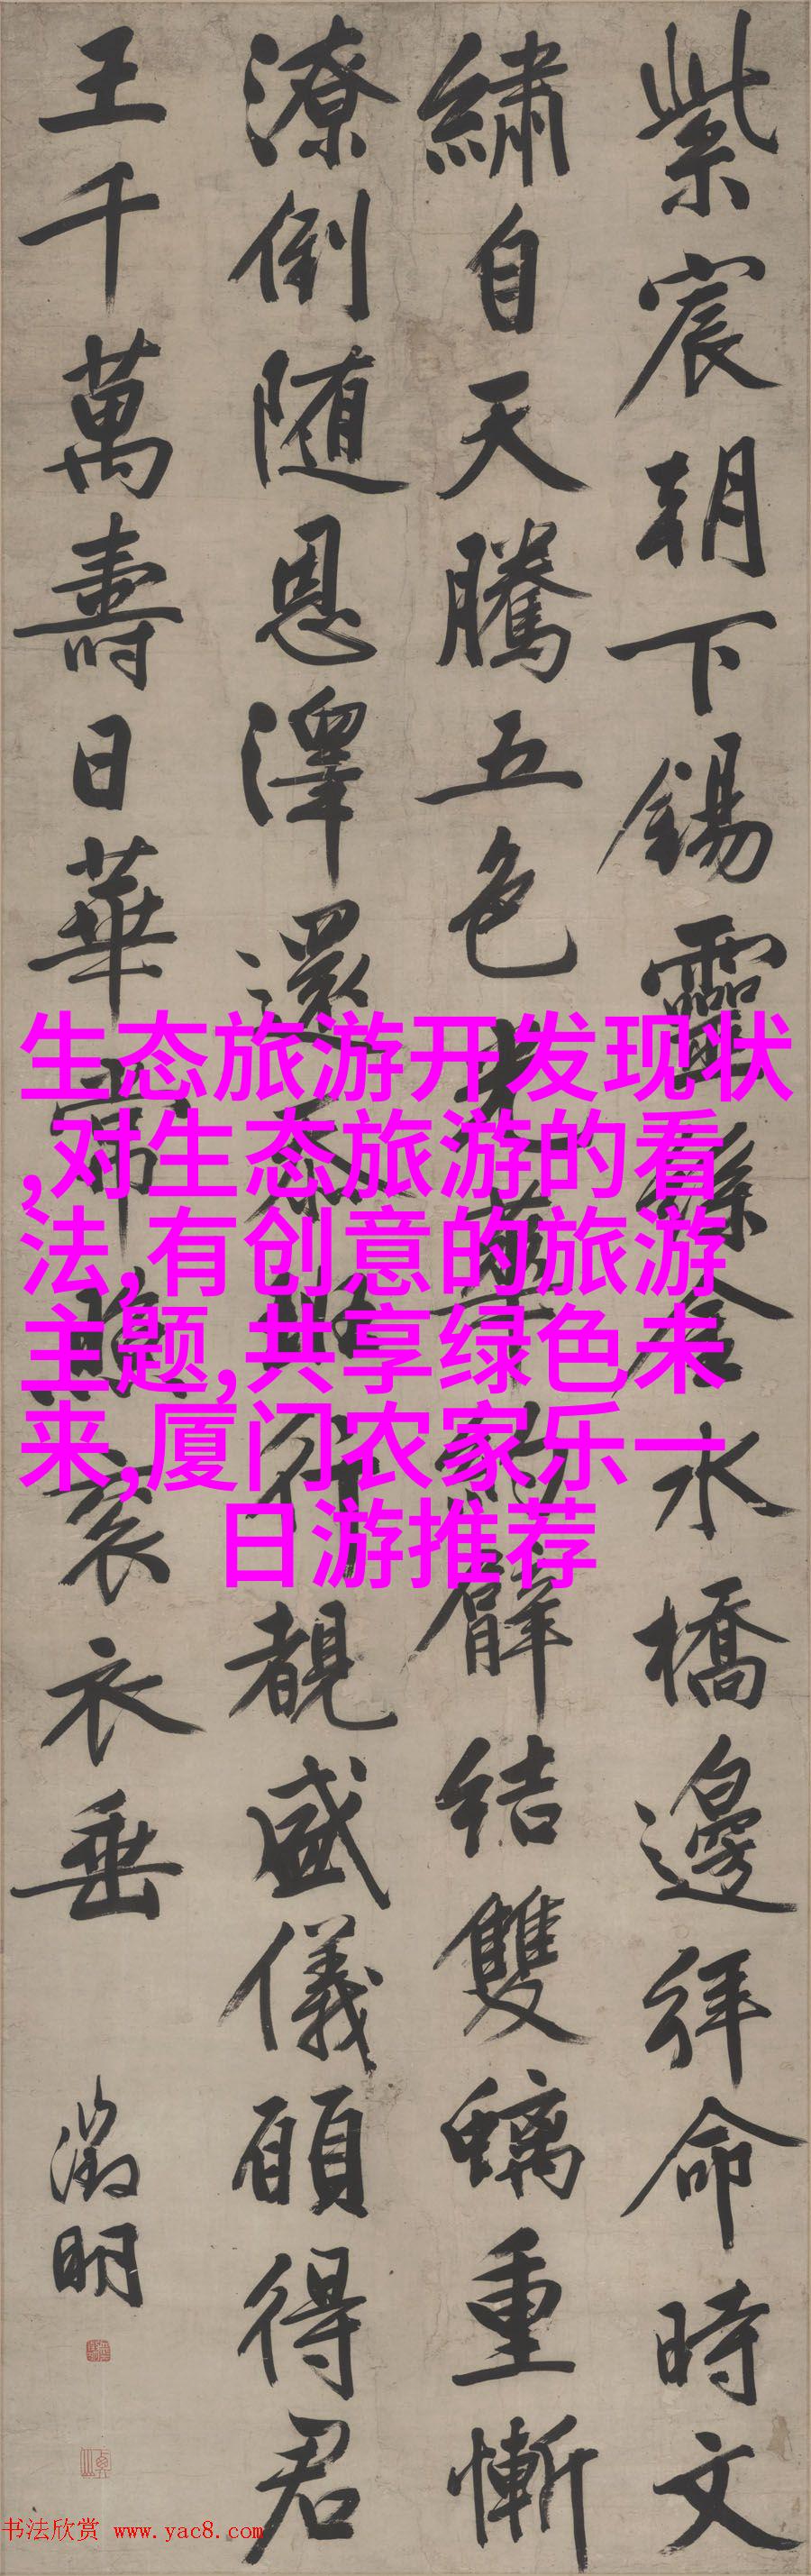 紫宸朝下錫靈絲金水橋邊拜命時文
繡自天騰五色光華糾臂結雙螭重慚
潦倒随恩澤還忝班行覩盛儀願得君
王千萬壽日華常照衮衣垂
徵明
生态旅游开发现状
,对生态旅游的看
法,有创意的旅游
主题,共享绿色未
来,厦门农家乐一
日游推荐
书法欣赏 www.yac8.com